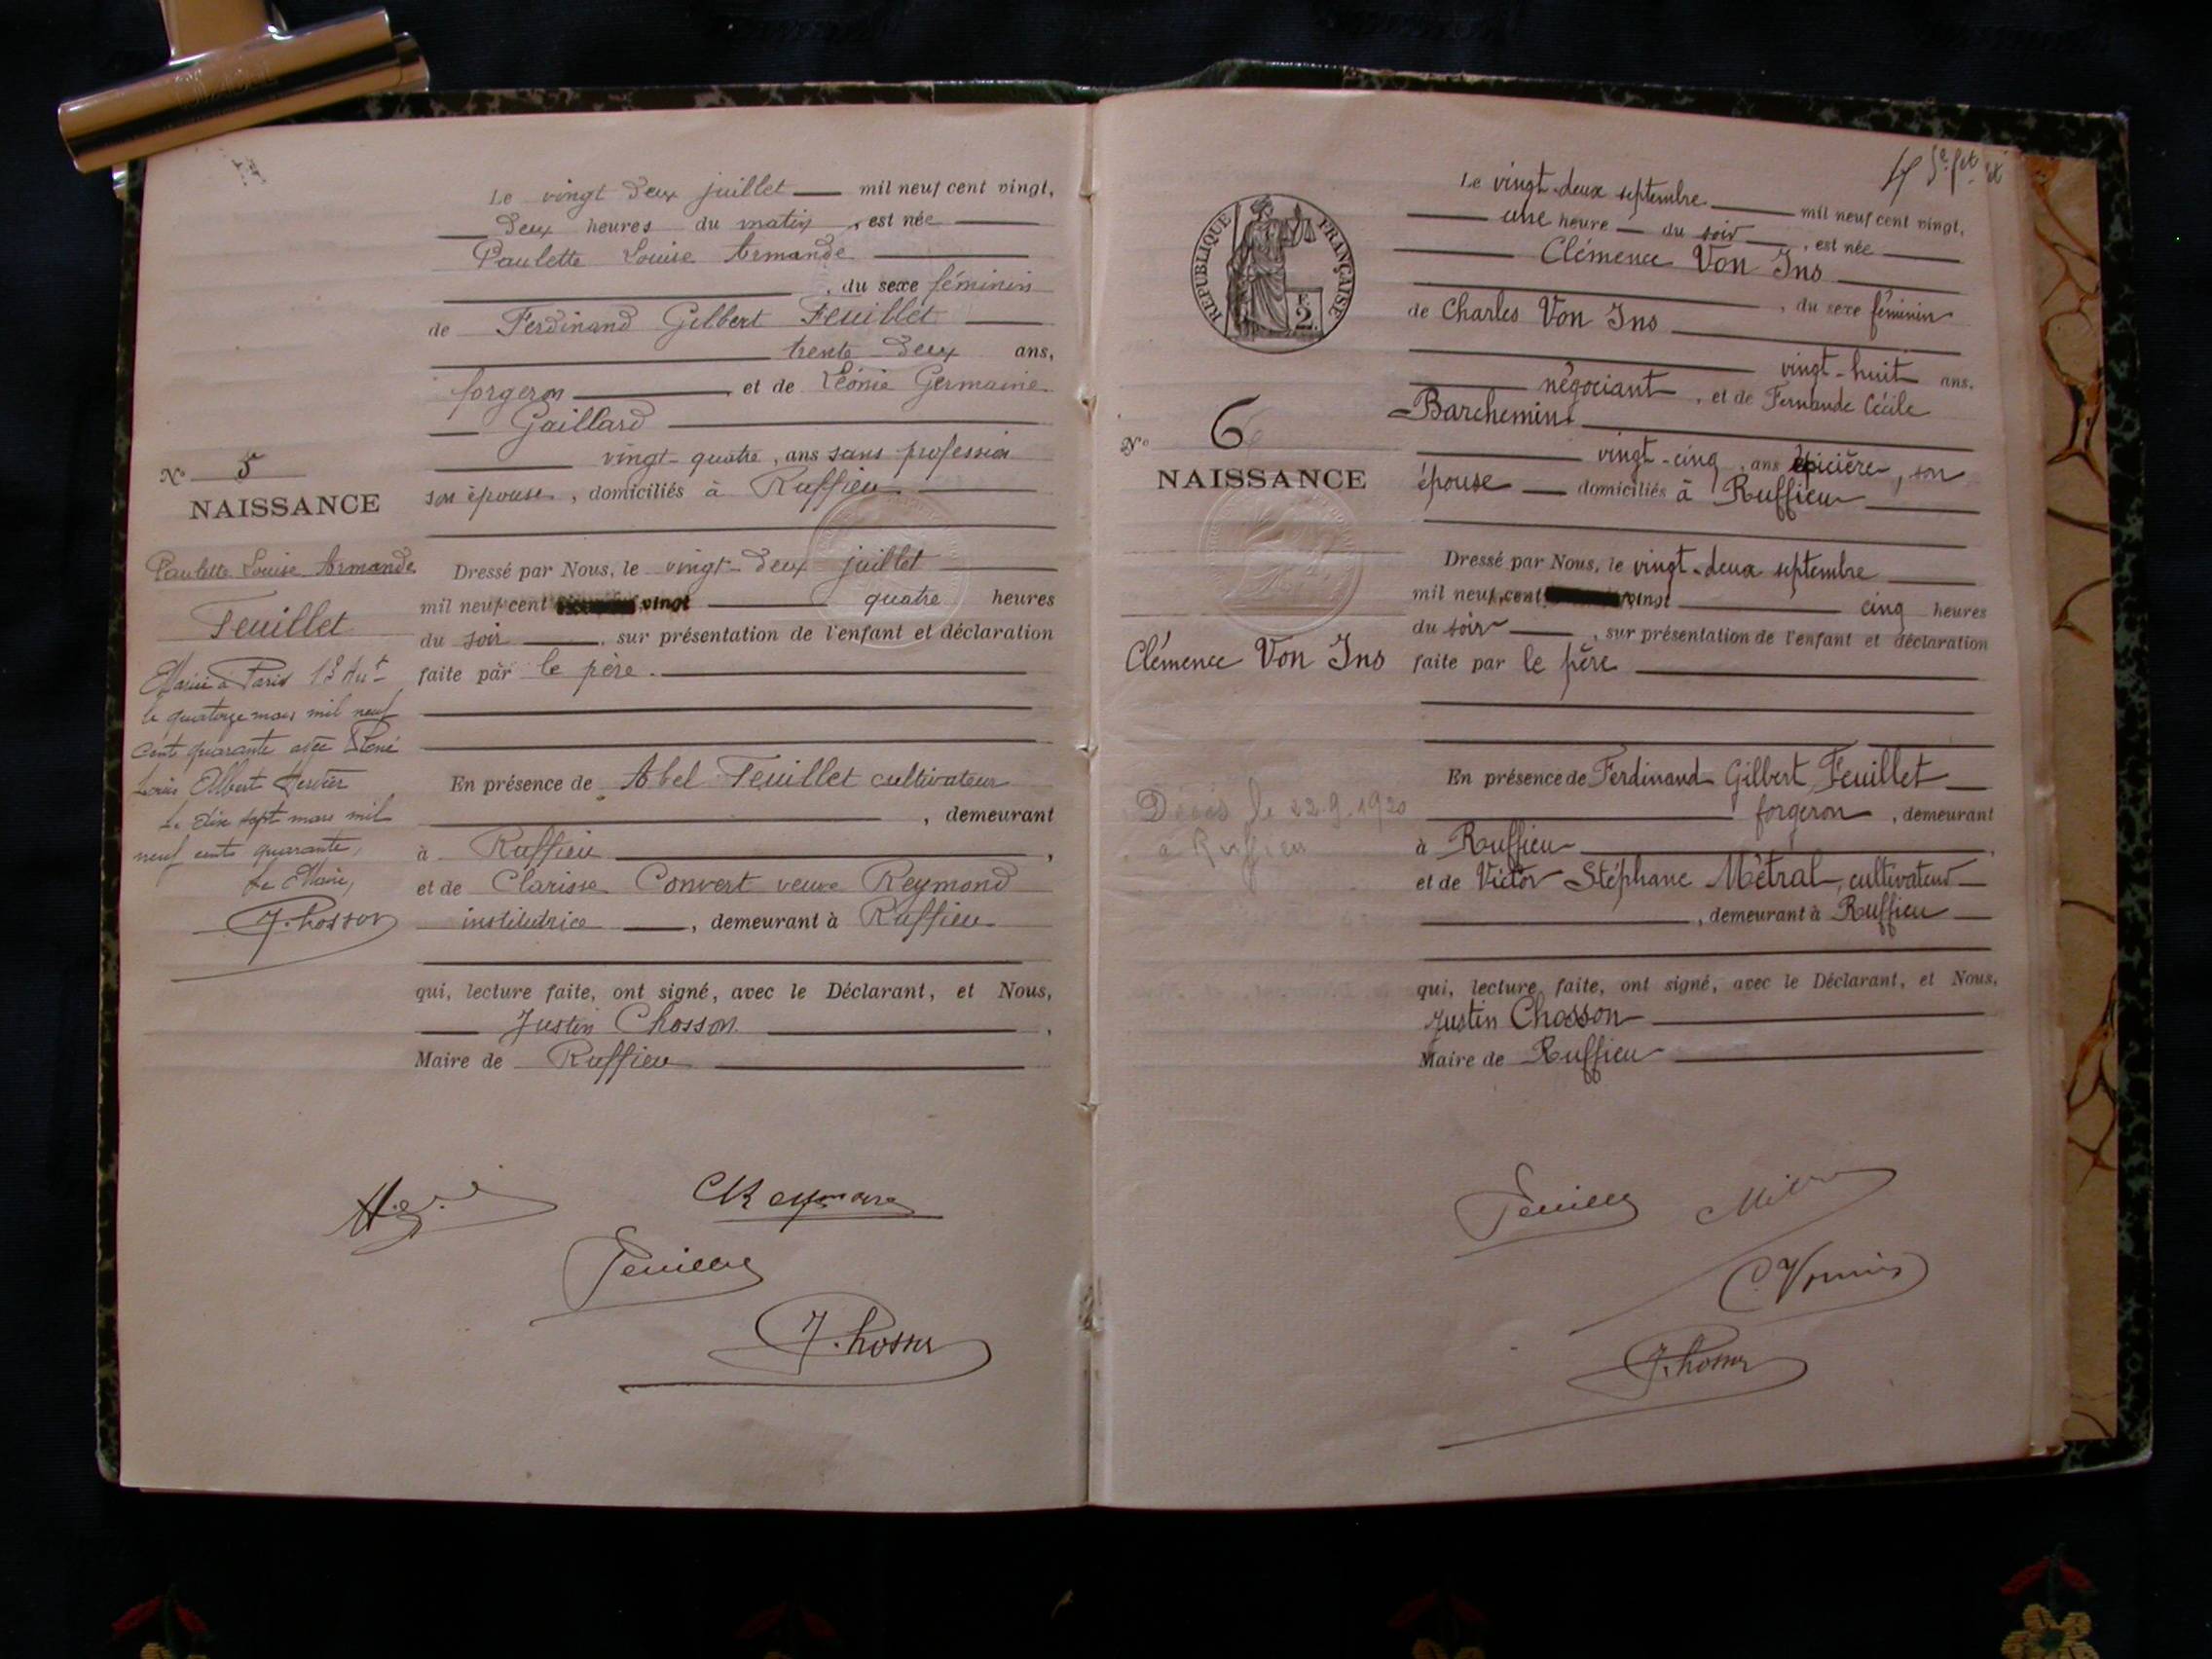 Le vingt deux juillet mil neuf cent vingt,
deux heures du matin, est née
Paulette Louise Armande
, du sexe féminin
de Ferdinand Gilbert Feuillet
trente deux ans,
forgeron, et de Léonie Germaine
Gaillard
vingt-quatre, ans sans profession
son épouse, domiciliés à Ruffieu
N° 5
NAISSANCE
Paulette Louise Armande
Feuillet
Dressé par Nous, le vingt-deux juillet
mil neuf cent vingt quatre heures
du soir, sur présentation de l'enfant et déclaration
faite par le père.
Mariée à Paris
le quatorze mars mil neuf
cent quarante avec René
Louis Albert
Le dix sept mars mil
neuf cent quarante,
Le Maire,
J. Chosson
En présence de Abel Feuillet cultivateur
, demeurant
à Ruffieu,
et de Clarisse Convert veuve Reymond
institutrice, demeurant à Ruffieu
qui, lecture faite, ont signé, avec le Déclarant, et Nous,
Justin Chosson,
Maire de Ruffieu
C Reymond
Feuillet
J. Chosson
RÉPUBLIQUE FRANÇAISE
F.
2
Le vingt-deux septembre mil neuf cent vingt,
une heure du soir, est née
Clémence Von Ins
, du sexe féminin
de Charles Von Ins
vingt-huit ans,
négociant, et de Fernande Cécile
Barchemin
vingt-cinq, ans épicière, son
épouse domiciliés à Ruffieu
N° 6
NAISSANCE
Clémence Von Ins
Dressé par Nous, le vingt-deux septembre
mil neuf cent vingt cinq heures
du soir, sur présentation de l'enfant et déclaration
faite par le père
Décès le 22.9.1920
à Ruffieu
En présence de Ferdinand Gilbert Feuillet
forgeron, demeurant
à Ruffieu,
et de Victor Stéphane Métral, cultivateur
, demeurant à Ruffieu
qui, lecture faite, ont signé, avec le Déclarant, et Nous,
Justin Chosson
Maire de Ruffieu
Feuillet
Métral
C. Vonins
J. Chosson